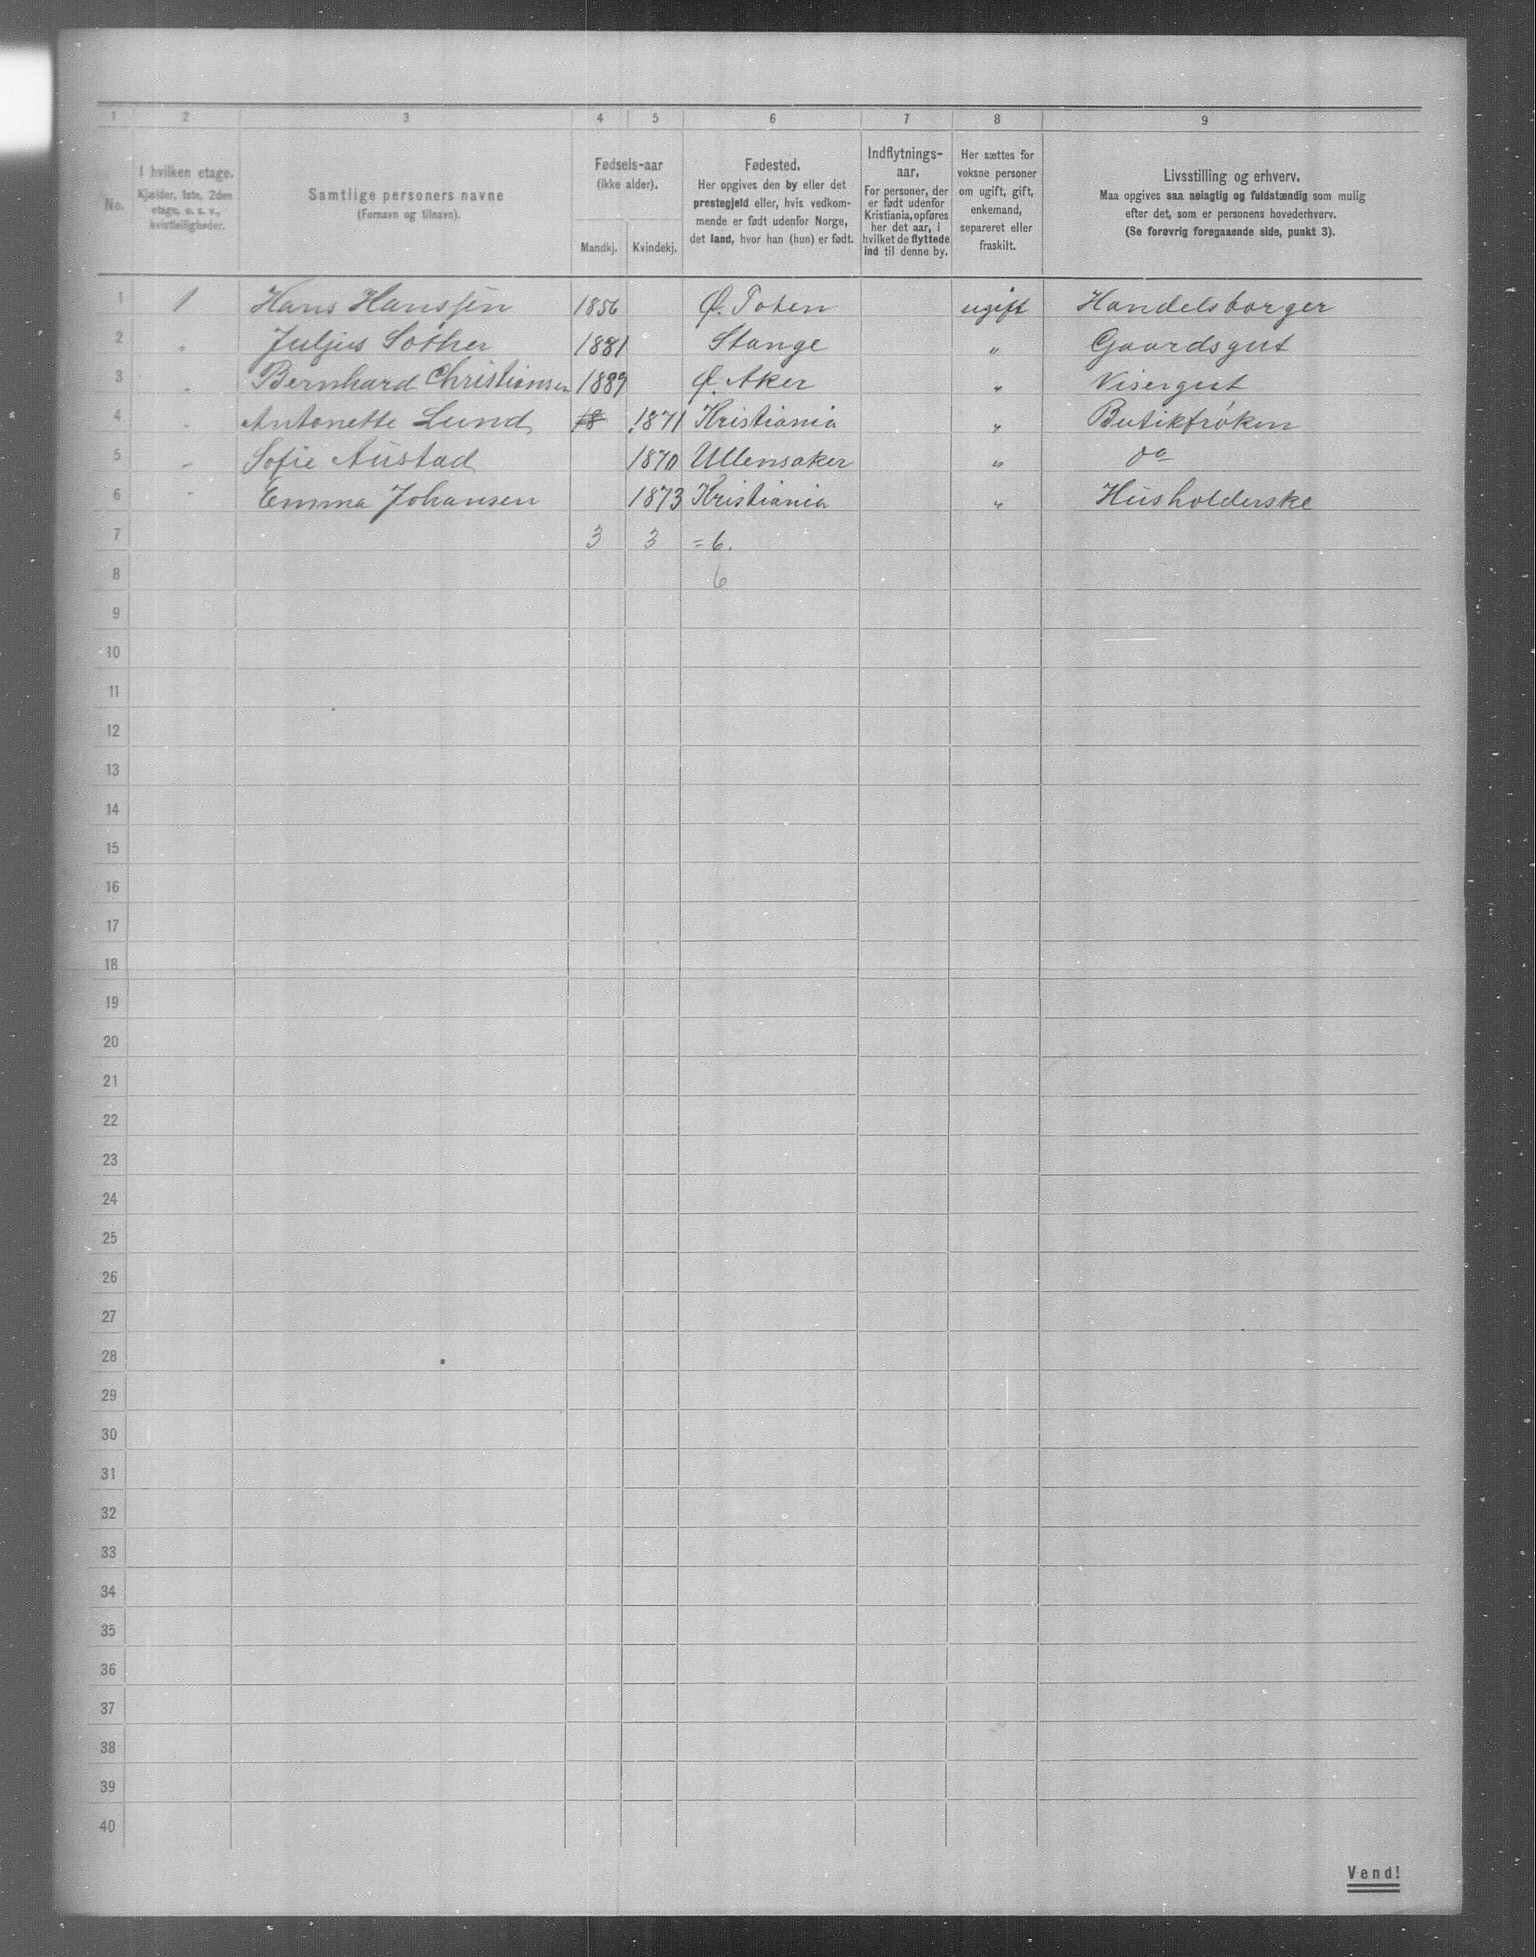 1 2 3 4 5 6 7 8 9
No.
I hvilken etage.
Kjælder, 1ste, 2den
etage, o. s. v.,
kvistleiligheder.
Samtlige personers navne
(Fornavn og tilnavn).
Fødsels-aar
(ikke alder).
Mandkj. Kvindekj.
Fødested.
Her opgives den by eller det
prestegjeld eller, hvis vedkom-
mende er født udenfor Norge,
det land, hvor han (hun) er født.
Indflytnings-
aar.
For personer, der
er født udenfor
Kristiania, opføres
her det aar, i
hvilket de flyttede
ind til denne by.
Her sættes for
voksne personer
om ugift, gift,
enkemand,
separeret eller
fraskilt.
Livsstilling og erhverv.
Maa opgives saa nøiagtig og fuldstændig som mulig
efter det, som er personens hovederhverv.
(Se forøvrig foregaaende side, punkt 3).
1 1 Hans Hanssen 1856 Ø. Toten ugift Handelsborger
2 " Juljus Sother 1881 Stange " Gaardsgut
3 " Bernhard Christiansen 1889 Ø. Aker " Visergut
4 " Antonette Lund 18 1871 Kristiania " Butikfrøken
5 " Sofie Austad 1870 Ullensaker " do
6 " Emma Johansen 1873 Kristiania " Husholderske
7 3 3 = 6.
8 6
9
10
11
12
13
14
15
16
17
18
19
20
21
22
23
24
25
26
27
28
29
30
31
32
33
34
35
36
37
38
39
40
Vend!